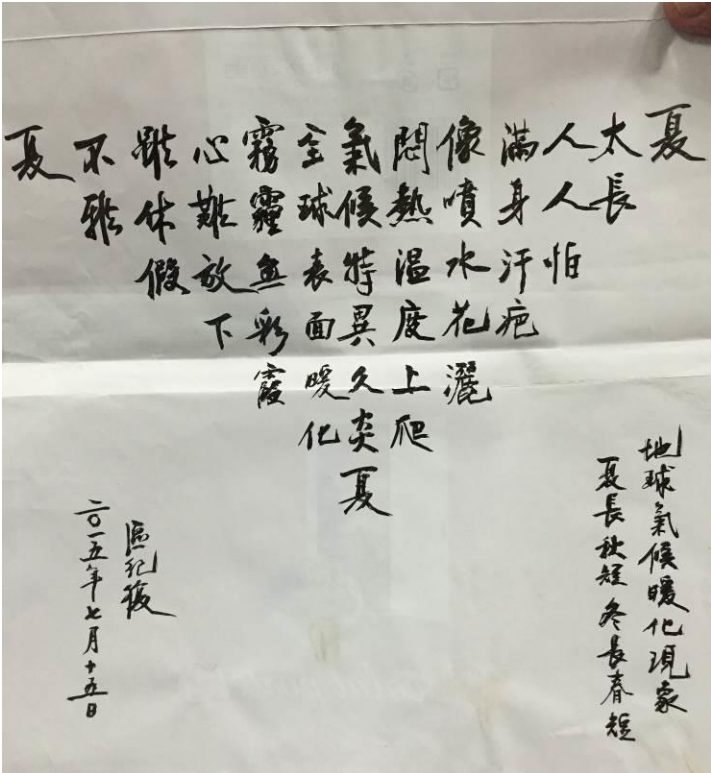 夏
太長
人人怕
滿身汗疤
像噴水花灑
悶熱溫度上爬
氣候特異久炎夏
全球表面暖化
霧霾無彩霞
心難放下
雖休假
不雅
夏
地球氣候暖化現象
夏長秋短冬長春短
區紀復
二〇一五年七月十五日